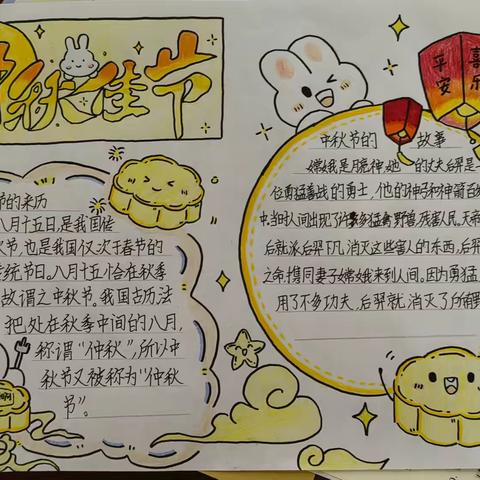 秋佳节
节的来历
八月十五日,是我国传
秋节,也是我国仅次于春节的
传统节日。八月十五恰在秋季
故谓之中秋节。我国古历法
把处在秋季中间的八月,
称谓“仲秋”,所以中
秋节又被称为“仲秋
节”。
平安
喜乐
中秋节的 故事
嫦娥是月神,她的丈夫后羿是一
位勇猛善战的勇士,他的神弓和神箭百
中.当时人间出现了许多猛禽野兽,残害人民。天帝
后就派后羿下凡,消灭这些害人的东西,后羿
之命,携同妻子嫦娥来到人间。因为勇猛
用了不多功夫,后羿就消灭了所有